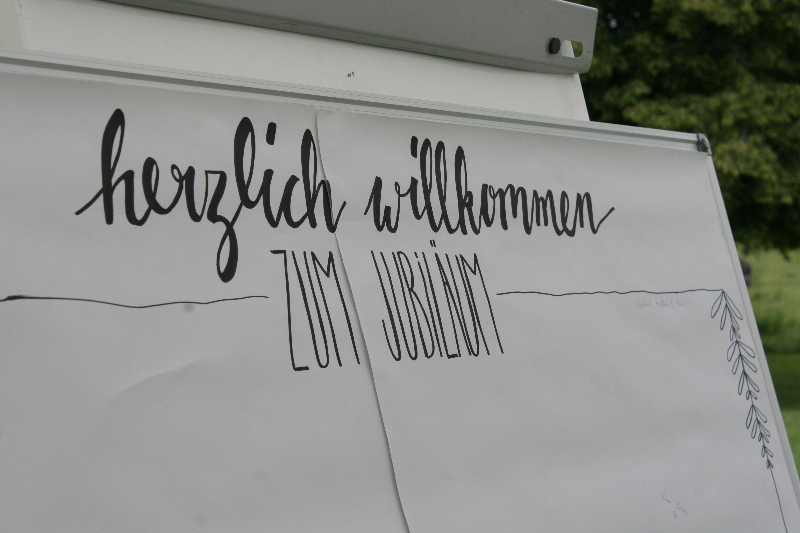 herzlich willkommen
ZUM JUBiLÄUM